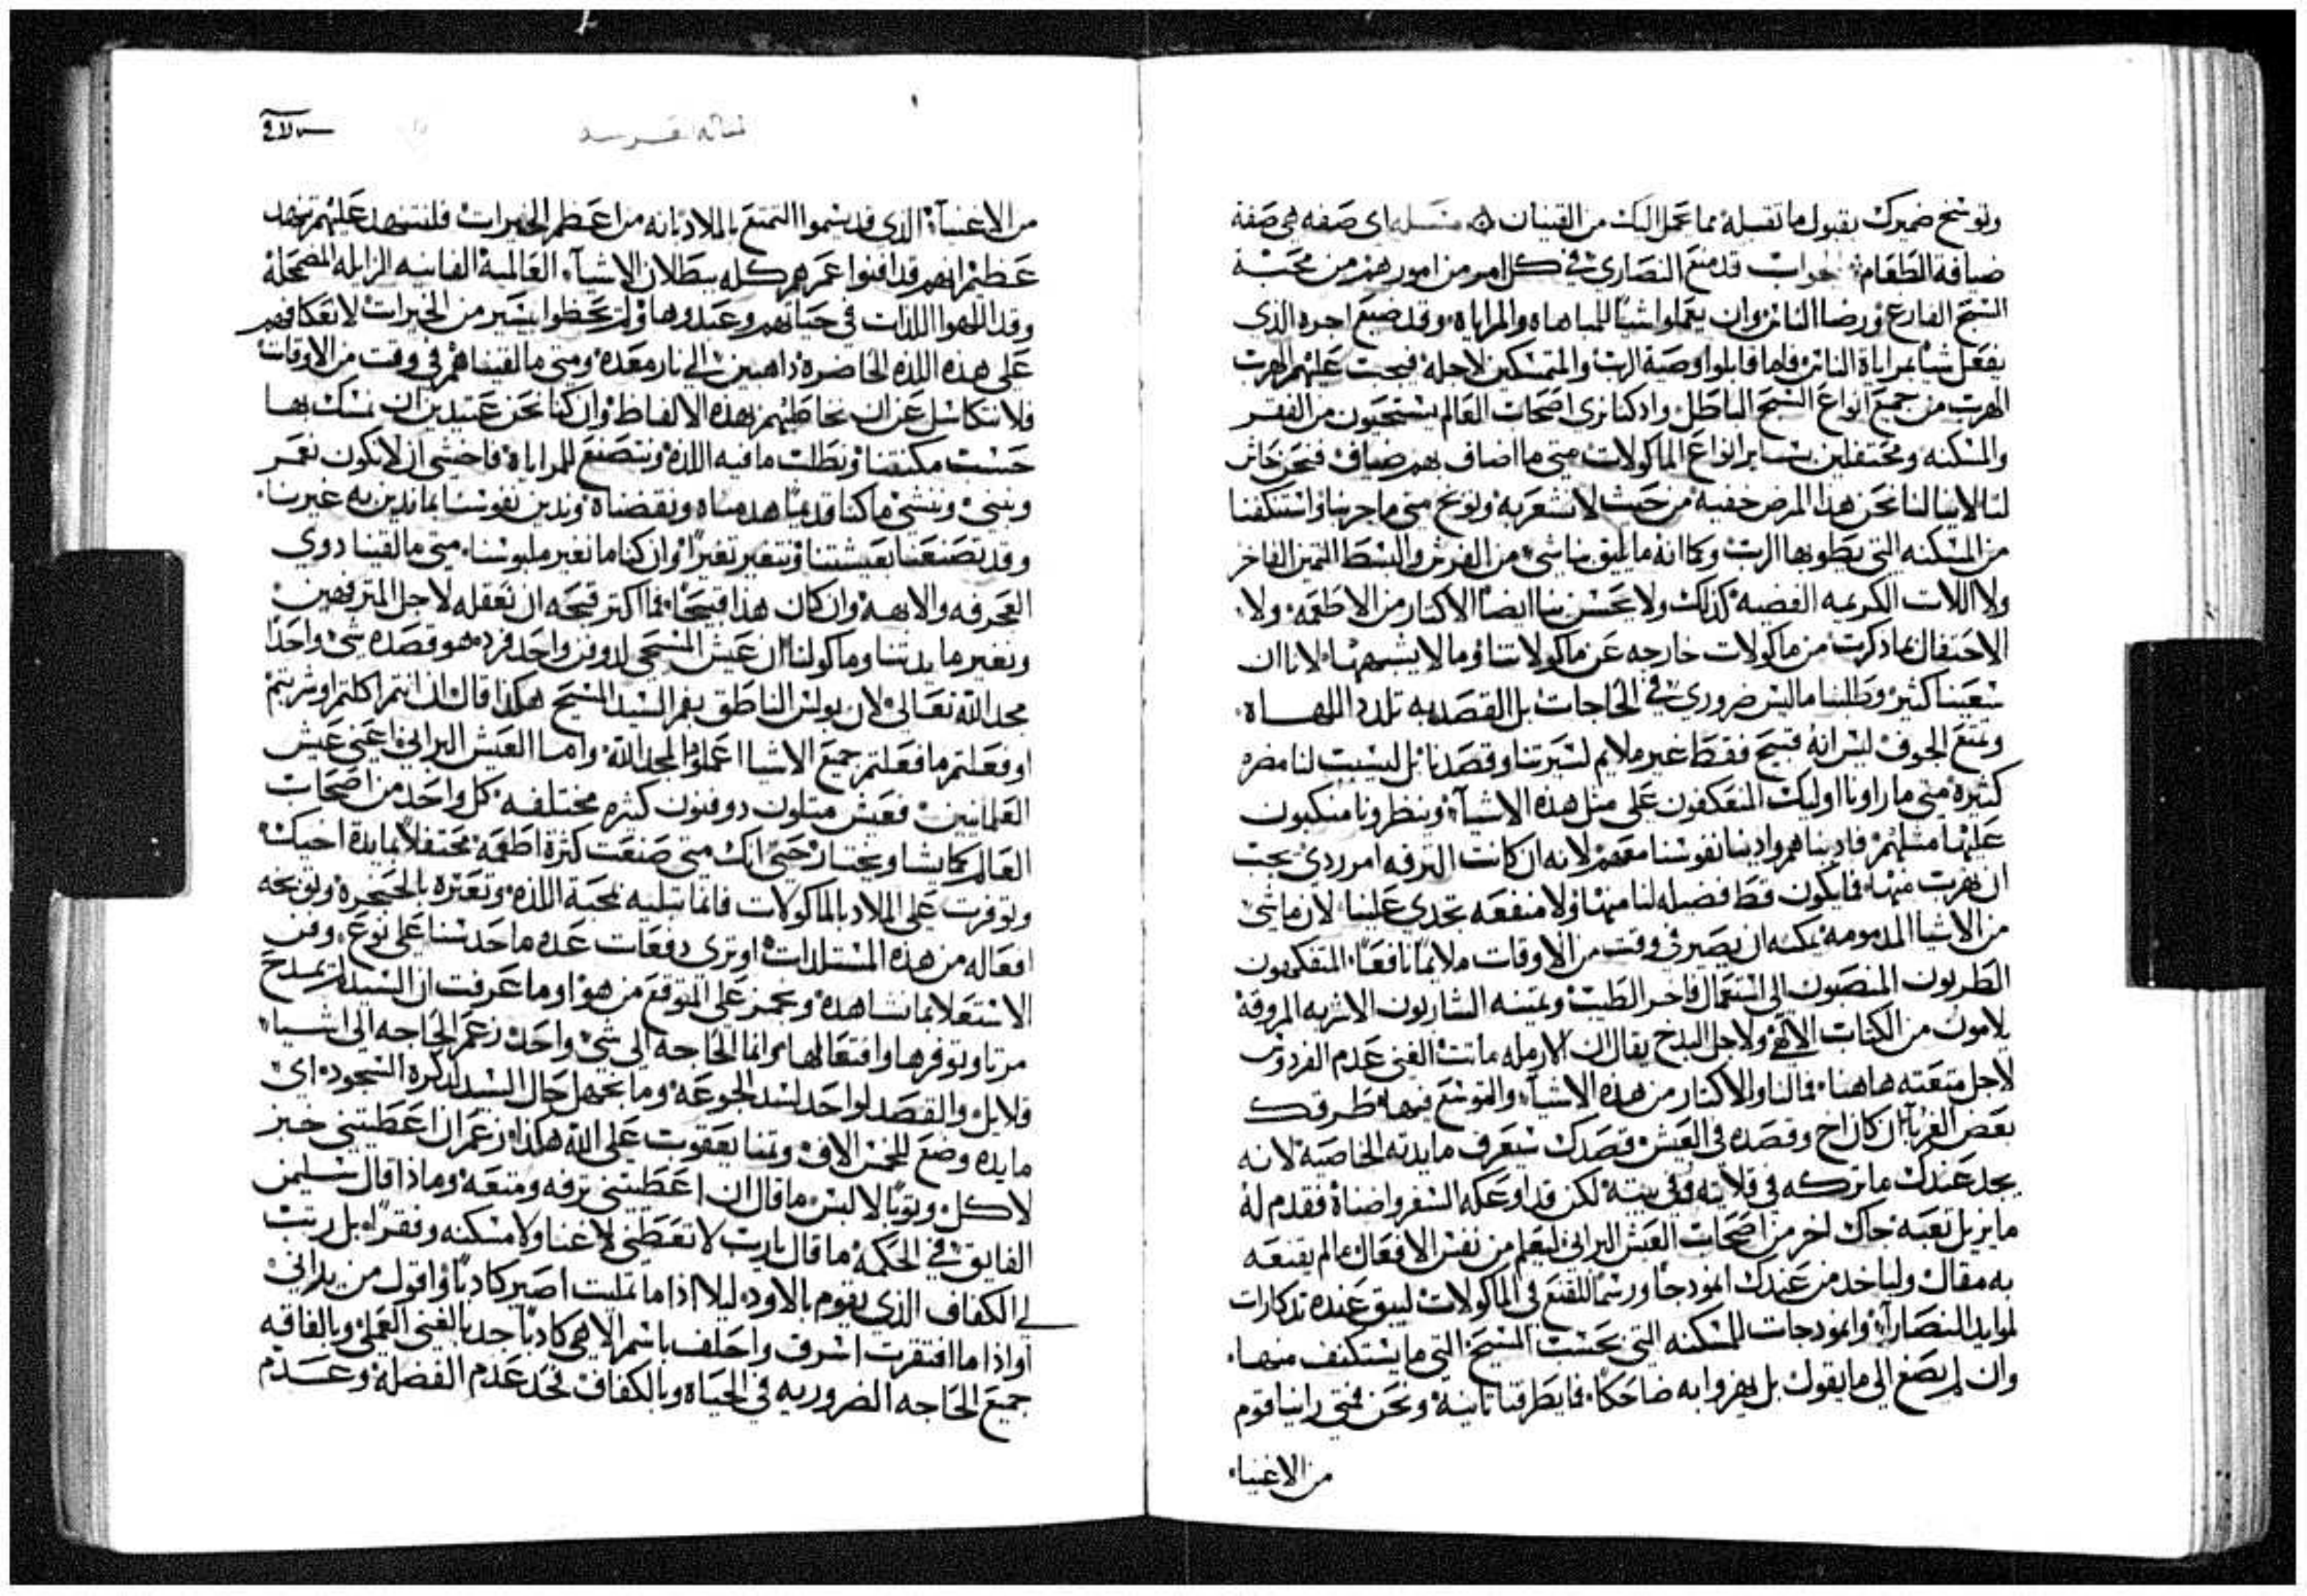 وتوسّخ ضميرك بقبول ما تقبله مما عمل اليك من القينان مسله اى صفه هى صفة
ضيافة الطعام جواب قد منع النصارى فى كل امر من امورهم من محبة
السبح الفارغ ورضا الناس وان يعملوا شيًا للمباهاه والمراياه وقد ضيع اجره الذى
يفعل شيا بمراياة الناس فاما قابلوا وصية الرب والمتمسكين لاجله فيجب عليهم الهرب
الهرب من جميع انواع السبح الباطل واد كنا نرى اصحاب العالم يستحيون من الفقر
والمسكنه ومحتفلين بساير انواع الماكولات متى ما اضاف بهم ضياف فنحن خاش
لنا لاينالنا نحن هذا المرض خفيه من حيث لا نشعر به ونوبخ متى ما جربنا واستنكفنا
من المسكنه التى يطوبها الرب وكما انه ما يليق بنا شى من الفرش والبسط الثمين الفاخر
ولا اللات الكريمه الفضيه كذلك ولا يحسن بنا ايضا الاكثار من الاطعمه ولا
الاحتفال بما ذكرت من ماكولات خارجه عن ماكولاتنا وما لا يشبهها لانا ان
سعينا كثير وطلبنا ما ليس ضرورى فى الحاجات بل القصد به تلدد اللهاه
وتمتع الجوف ليس انه قبيح فقط غير ملايم لسيرتنا وقصدنا بل ليسبب لنا مضره
كثيرة متى ما راونا اوليك المنعكفون على مثل هذه الاشياء وينظرونا منكبون
عليها مثلهم فادبناهم وادينا نفوسنا معهم لانه ان كانت الترفه امر ردى يجب
ان نهرب منها فما يكون قط فضيله لنا منها ولا منفعه تجدى علينا لان ما شى
من الاشيا المدمومه يمكنه ان يصير فى وقت من الاوقات ملايما نافعًا المتفكهون
الطربون المنصبون الى استعمال فاخر الطيب وثمينه الشاربون الاشربه المروقة
يلامون من الكتاب الالاهى ولاجل البدخ يقال ان الارمله ماتت الغنى عدم الفردوس
لاجل متعته هاهنا فما لنا والاكثار من هذه الاشياء والتوسع فيها طرقك
بعض الغرباء ان كان اخ وقصده فى العيش قصدك سيعرف مايدته الخاصية لانه
يجد عندك ما تركه فى قلايته وفى بيته لكن قد اوعكه السفر واضناه فقدم له
ما يزيل تعبه جاك اخر من اصحاب العيش البرانى ليعلم من نفس الافعال ما لم يقنعه
به مقال ولياخد من عندك انمودجا ورسما للقنع فى الماكولات ليبق عنده تدكارات
لموايد النصاراء وانمودجات للمسكنه التى بحسب المسيح التى ما يستنكف منها
وان لم يصغ الى ما يقول بل يهزوا به ضاحكًا فما يطرقنا ثانية ونحن فمتى راينا قوم
من الاغنياء
من الاغنياء الدى قد يسموا التمتع بالملاد بانه من اعظم الخيرات فلنتنهد عليهم تنهد
عظيم انهم قد افنوا عمرهم كله ببطلان الاشياء العالمية الفانيه الزايله المضمحلة
وقد الهوا اللذات فى حياتهم وعبدوها ولم يحظوا بيسير من الخيرات لانعكافهم
على هده اللذه الحاضره داهبين الى نار معده ومتى ما لقيناهم فى وقت من الاوقات
فلا نتكاسل عن ان نخاطبهم بهذه الالفاظ وان كنا نحن عتيدين ان نمسك بها
حسب مكنتنا ونطلب ما فيه اللدة ونتصنع للمراياه فاخشى ان لا نكون نعمر
ونبنى وننشى ما كنا قديمًا هدمناه ونقضناه وندين نفوسنا بما ندين به غيرنا
وقد تصنعنا بعيشتنا ونتغير تغيرا وان كنا ما نغير ملبوسنا متى ما لقينا دوى
العجرفه والابهة وان كان هذا قبيحًا فما اكتر قبحه ان نعقله لاجل المترفهين
ونغير مايدتنا وماكولنا ان عيش المسيحى لدو فن واحد فرد هو قصده شى واحدًا
مجد الله تعالى لان بولس الناطق بفم السيد المسيح هكذا قال ان انتم اكلتم او شربتم
او فعلتم ما فعلتم جميع الاشيا اعملوها لمجد الله واما العيش البرانى اعنى عيش
العلمانيين فعيش متلون دو فنون كثيره مختلفه كل واحد من اصحاب
العالم كما يشا ويختار حتى انك متى صنعت كثرة اطعمة محتفلا بمايدة اخيك
وتوفرت على الملاد بالماكولات فانما تبليه بمحبة اللذه وتعيره بالحنجرة وتوبخه
افعاله من هذه المستلدات او ترى دفعات عده ما حدسنا على نوع وفن
الاستعلا بما نشاهده ونحمز على المتوقع من هو او ما عرفت ان السيد لم يمدح
مرتا وتوفرها وافتعالها وانما الحاجه الى شى واحد زعم الحاجه الى اشيا
قلايل والقصد لواحد لسد الجوعه وما نجهل حال السيد لدكره السجود اى
مايده وضع للخمس الاف وتمنا يعقوب على الله هكذا زعم ان اعطيتنى خبز
لاكل وثوبًا لالبس ما قال ان اعطيتنى ترفه ومتعة وماذا قال سليمن
الفايق فى الحكمة ما قال يارب لا تعطنى لا غنا ولا مسكنه وفقرًا بل رتب
لى الكفاف الذى يقوم بالاود ليلا اذا ما تمليت اصير كادبًا واقول من يرانى
او اذا ما افتقرت اسرق واحلف باسم الاهى كادبًا حد بالغنى العملى وبالفاقه
جميع الحاجه الضروريه فى الحياة وبالكفاف فحد عدم الفضلة وعدم